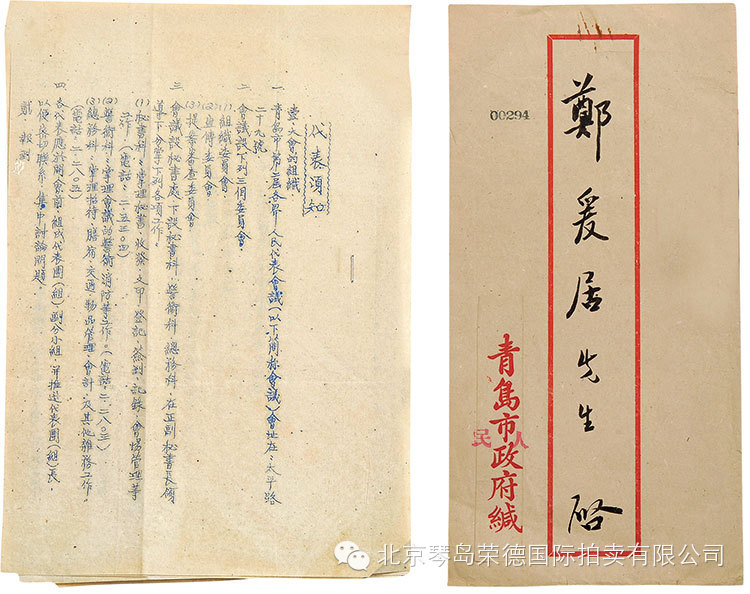 代表須知
壹、大會的組織:
一 青島市第二屆各界人民代表會議(以下簡稱會議)會址在:太平路
二十九號
二 會議設下列三個委員會:
(1)組織委員會
(2)宣傳委員會
(3)提案審查委員會
三 會議設秘書處下設秘書科、警衛科、總務科,在正副秘書長領
導下分掌下列各項工作。
(1)秘書科:掌理秘書、收發、文印、登記、簽到、記錄、會場管理等
工作(電話:二、五三〇四)
(2)警衛科:掌理會議的警衛、消防等工作。(電話:二、二八〇三)
(3)總務科:掌理招待、膳宿、交通、物品管理、會計、及其他雜務工作。
(電話:二、二八〇三)
四 各代表應於開會前,組成代表團(組)劃分小組,并推選代表團(組)長,
以便聯系,集中討論問題。
貳 報到
00294
鄭爰居先生 啓
青島市政府緘
人民
北京琴岛荣德国际拍卖有限公司